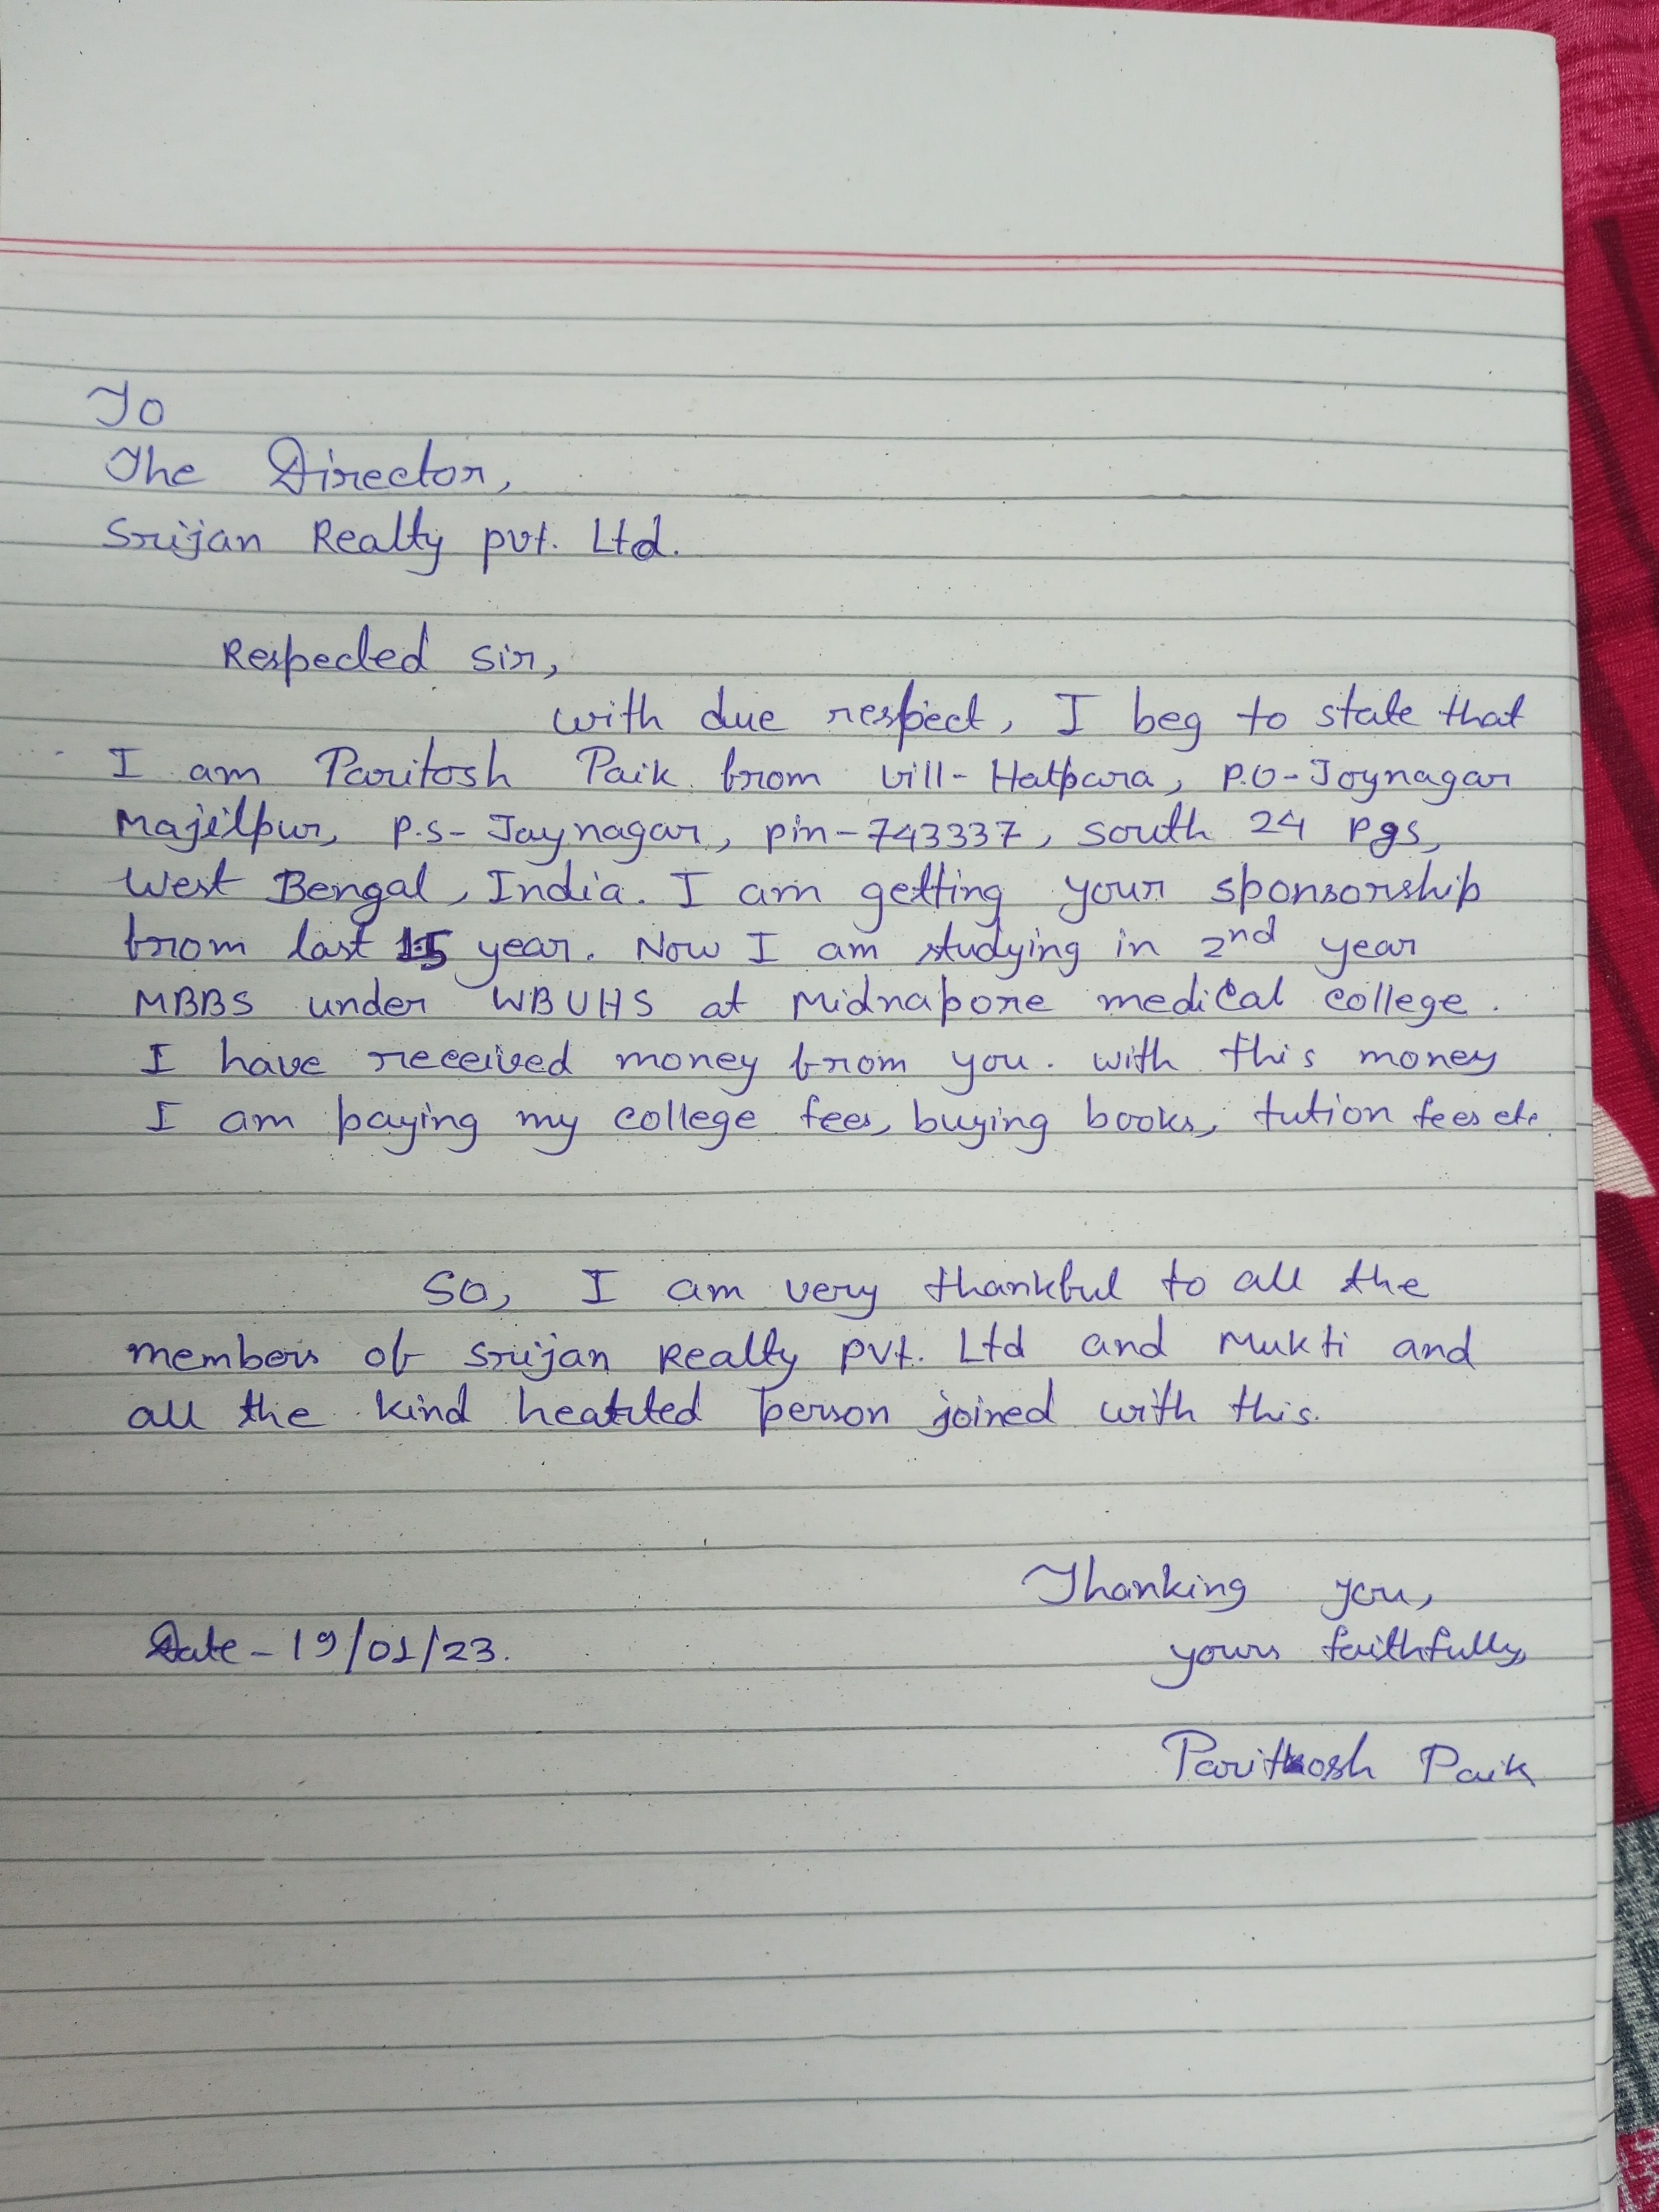 To
The Director,
Srijan Realty pvt. Ltd.
Respected sir,
with due respect, I beg to state that
I am Paritosh Paik from vill- Hatpara, P.O- Joynagar
Majilpur, P.S- Jaynagar, pin-743337, south 24 Pgs,
West Bengal, India. I am getting your sponsorship
from last year. Now I am studying in 2nd year
MBBS under WBUHS at Midnapore medical college.
I have received money from you. with this money
I am paying my college fees, buying books, tution fees etc.
So, I am very thankful to all the
members of Srijan Realty pvt. Ltd and Mukti and
all the kind heatted person joined with this.
Thanking you,
Date - 19/01/23.
yours faithfully,
Paritosh Paik